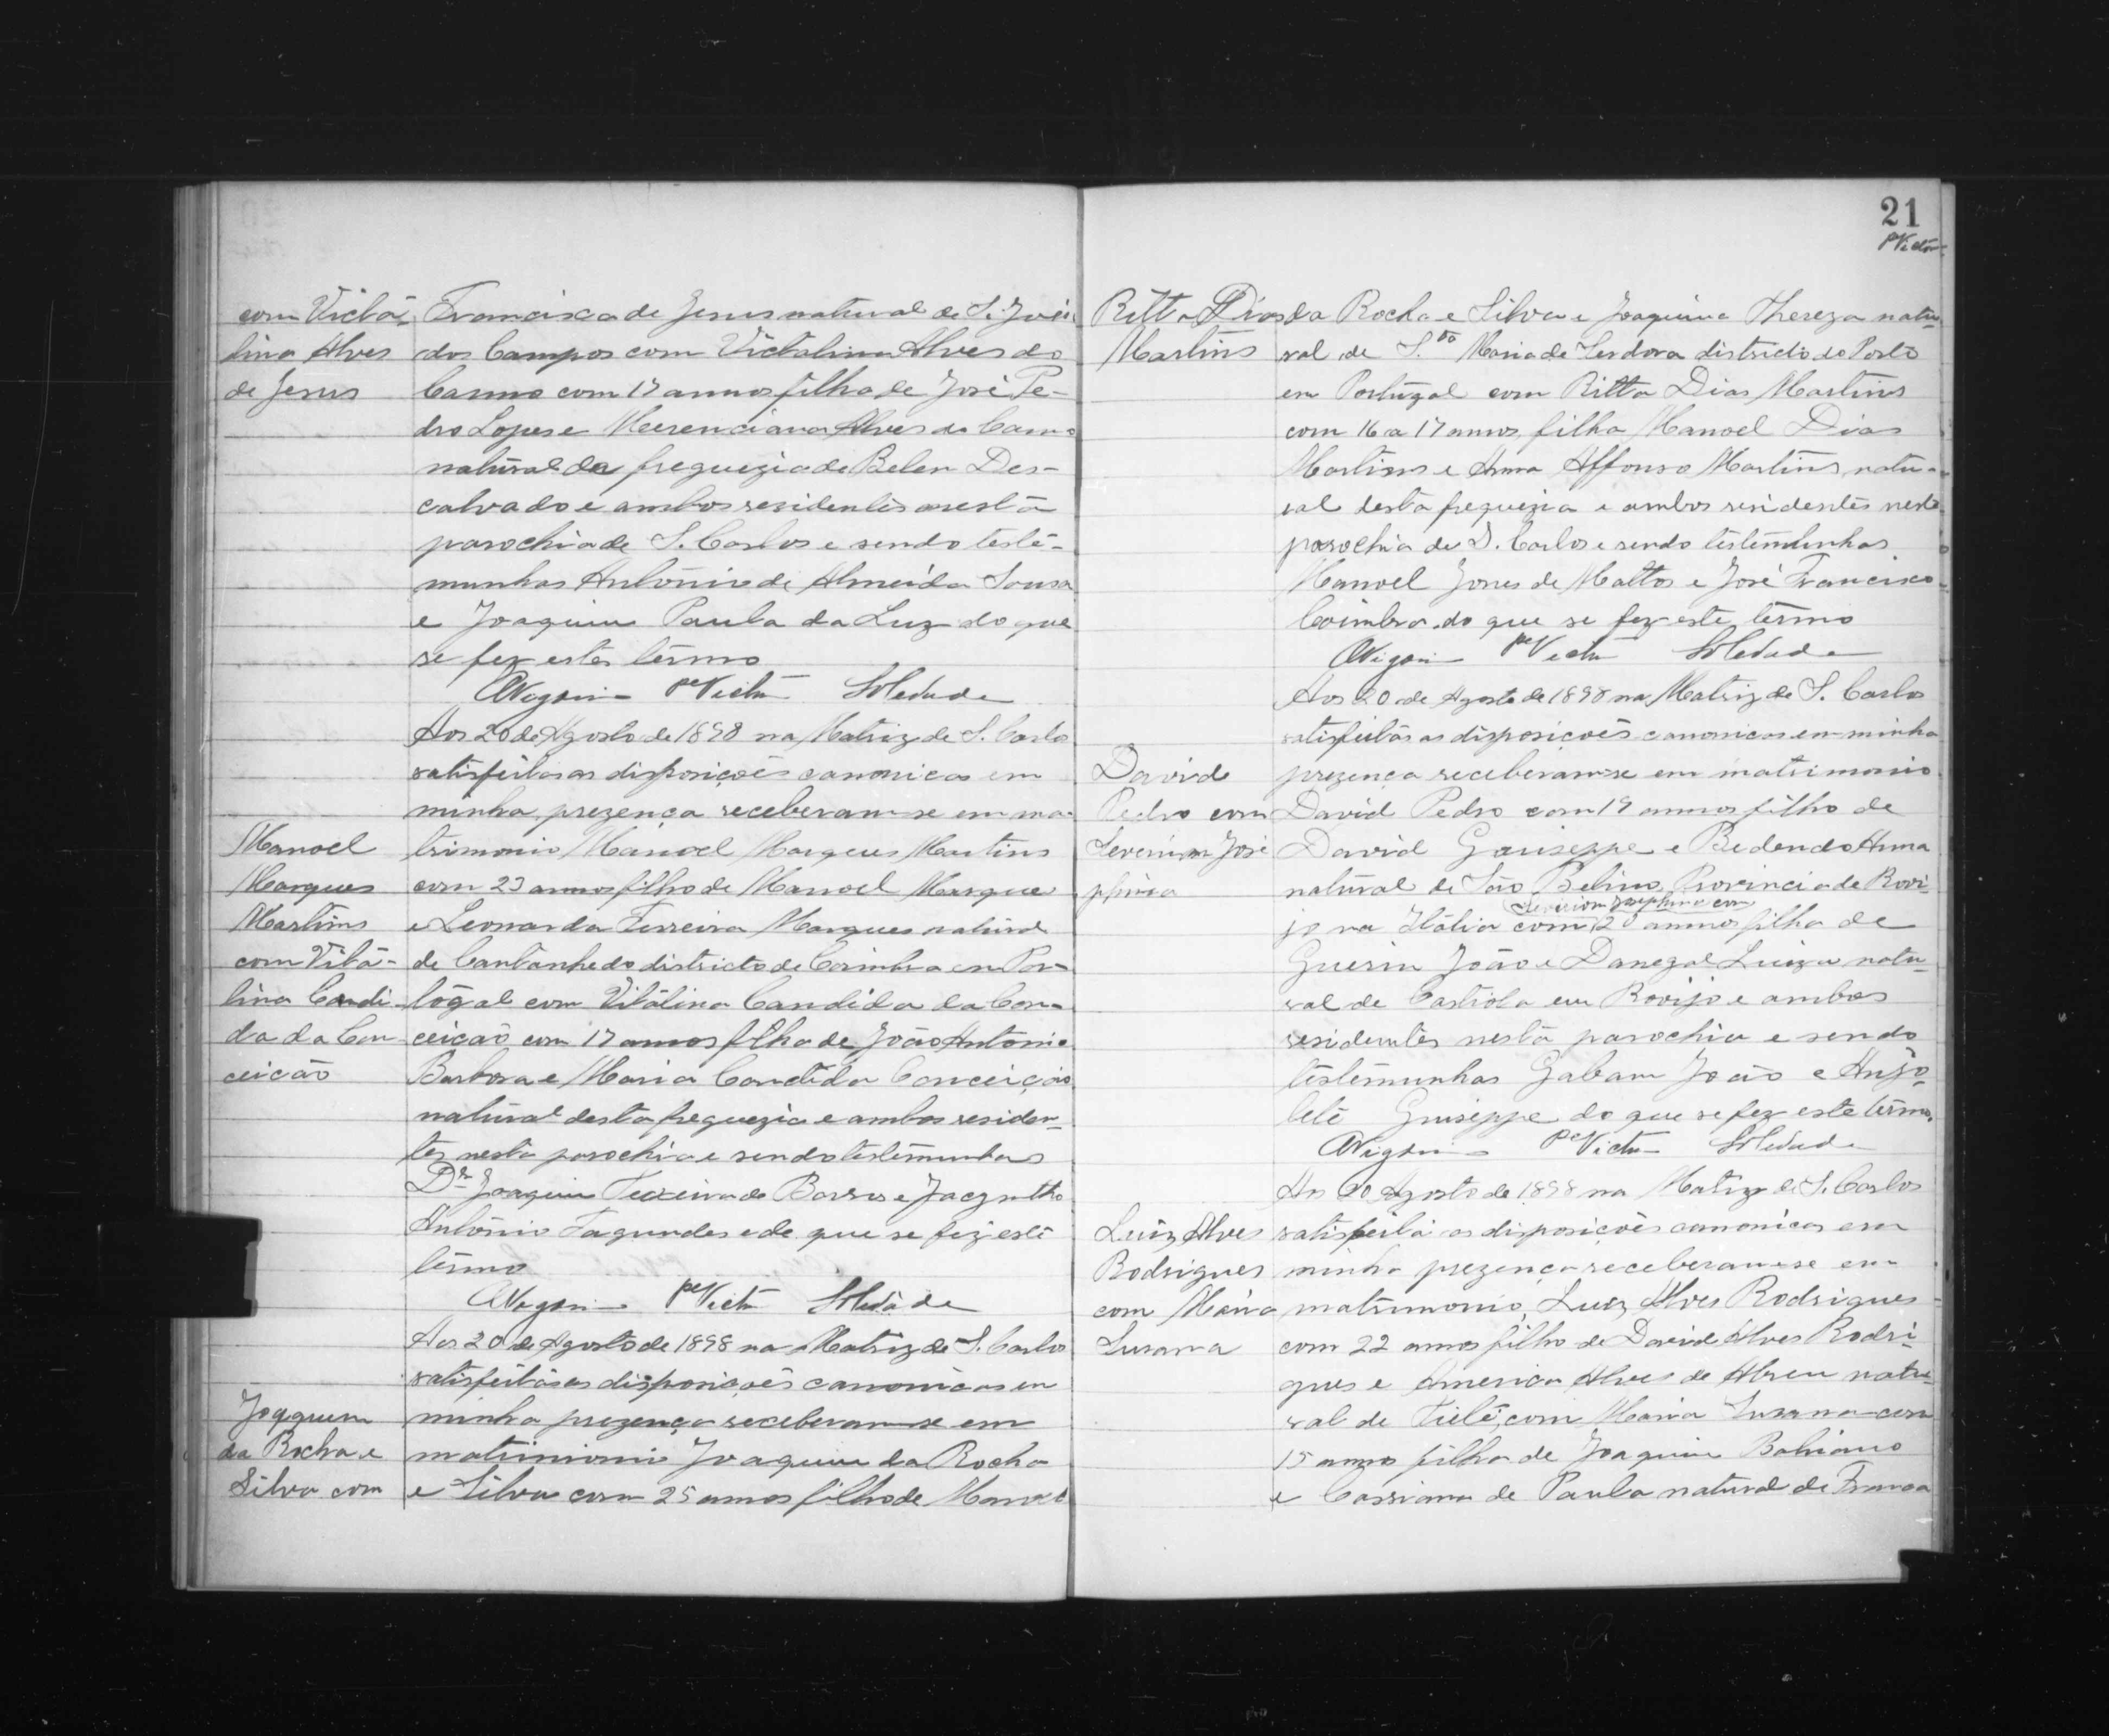 com Victa-
lina Alves
de Jesus
Francisca de Jesus natural de S. José
dos Campos com Victalina Alves do
Carmo com 17 annos filha de José Pe-
dro Lopes e Merenciana Alves do Carmo
natural da freguezia de Belem Des-
calvado e ambos residentes nesta
parochia de S. Carlos e sendo teste-
munhas Antonio de Almeida Sousa
e Joaquim Paula da Luz do que
se fez este termo
O Vigario Pe Victor Soledade
Aos 20 de Agosto de 1898 na Matriz de S. Carlos
satisfeitas as disposições canonicas em
minha prezença receberam-se em ma-
Manoel
Marques
Martins
com Vita-
lina Candi-
da da Con-
ceicão
trimonio Manoel Marques Martins
com 23 annos filho de Manoel Marques
e Leonarda Ferreira Marques natural
de Cantanhedo districto de Coimbra em Por-
togal com Vitalina Candida da Con-
ceicão com 17 annos filha de João Antonio
Barbosa e Maria Candida Conceição
natural desta freguezia e ambos residen-
tes nesta parochia e sendo testemunhas
Dr Joaquim Teixeira de Barros e Jacyntho
Antonio Fagundes e de que se fez este
termo
O Vigario Pe Victor Soledade
Aos 20 de Agosto de 1898 na Matriz de S. Carlos
satisfeitas as disposições canonicas em
Joaquim
da Rocha e
Silva com
minha prezença receberam-se em
matrimonio Joaquim da Rocha
e Silva com 25 annos filho de Manoel
21
Pe Victor
Ritta Dias
Martins
da Rocha e Silva e Joaquina Thereza natu-
ral de S.ta Maria de districto do Porto
em Portugal com Ritta Dias Martins
com 16 a 17 annos filha Manoel Dias
Martins e Anna Affonso Martins natu-
ral desta freguezia e ambos residentes nesta
parochia de S. Carlos e sendo testemunhas
Manoel Jones de Mattos e José Francisco
Coimbra do que se fez este termo
O Vigario Pe Victor Soledade
Aos 20 de Agosto de 1898 na Matriz de S. Carlos
satisfeitas as disposicoês canonicas em minha
David
Pedro com
José
phina
prezença receberam-se em matrimonio
David Pedro com 19 annos filho de
David Gauiseppe e Bedendo Anna
natural de São Belino Provincia de Rovi-
Josephina com
jo na Itália com 20 annos filha de
Guerin João e Danegal Luiza natu-
ral de em Rovijo e ambos
residentes nesta parochia e sendo
testemunhas Gabam João e Anjo-
leté Guiseppe do que se fez este termo.
O Vigario Pe Victor Soledade
Ao 20 Agosto de 1898 na Matriz de S. Carlos
Luiz Alves
Rodrigues
com Maria
Susana
satisfeita as disposições canonicas em
minha prezença receberam-se em
matrimonio Luiz Alves Rodrigues
com 22 annos filho de David Alves Rodri-
gues e America Alves de Abreu natu-
ral de Tieté, com Maria Susana com
15 annos filha de Joaquim Bahiano
e Cassiana de Paula natural de Franca